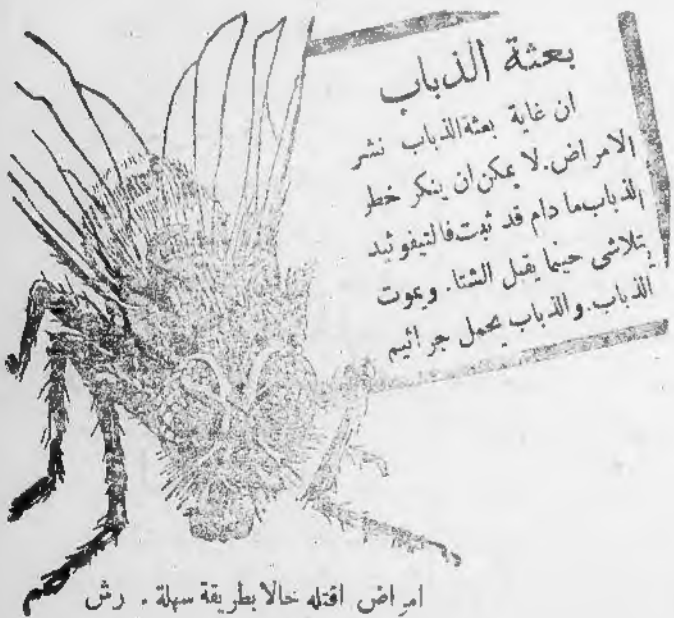 بعثة الذباب
ان غاية بعثة الذباب نشر
الامراض. لا يمكن ان ينكر خطر
الذباب ما دام قد ثبت فالتيفوئيد
يتلاشى حينما يقبل الشتا. ويموت
الذباب. والذباب يحمل جراثيم
امراض اقتله حالا بطريقة سهلة . رش